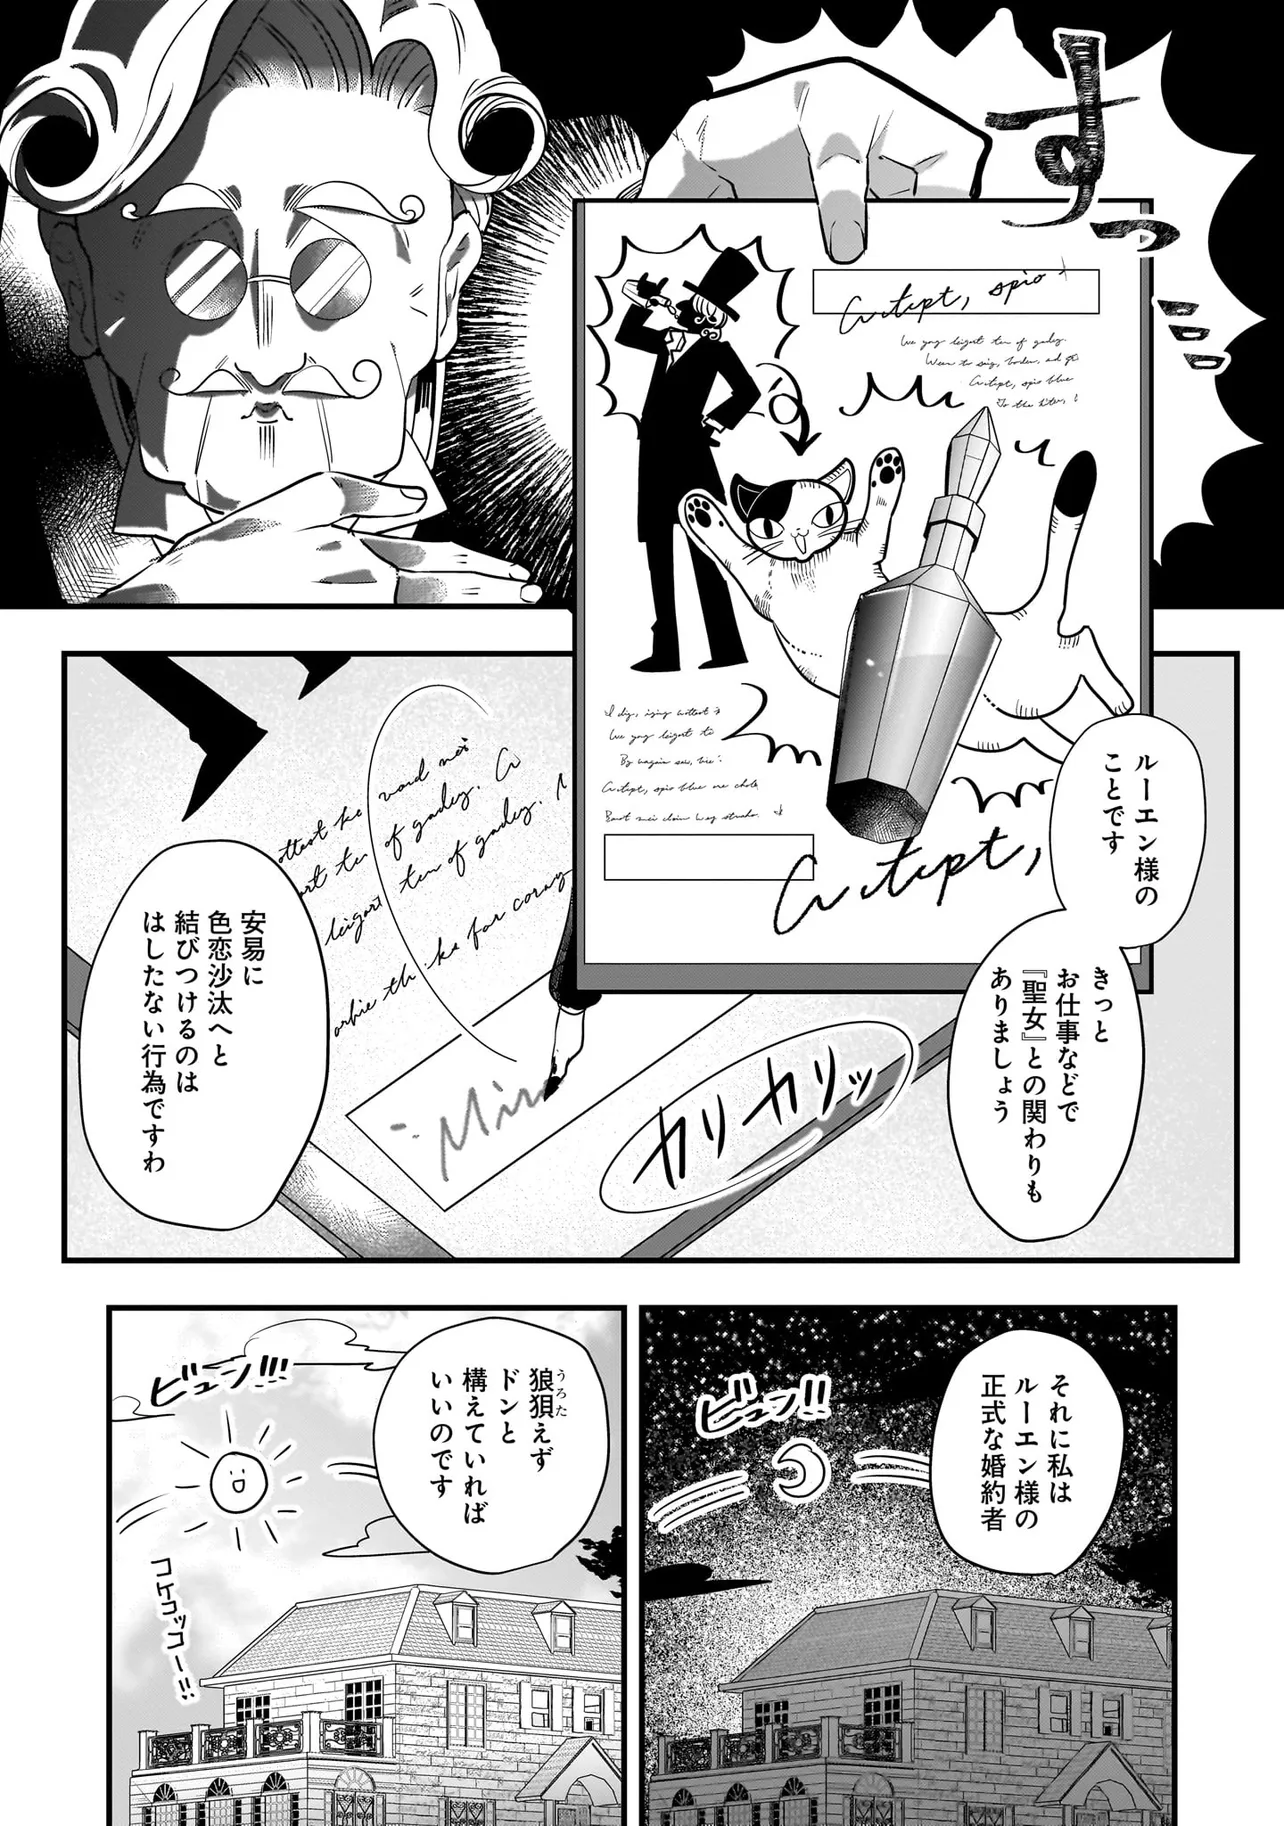 すっ
ルーエン様の
ことです
きっと
お仕事などで
『聖女』との関わりも
ありましょう
カリカリッ
安易に
色恋沙汰へと
結びつけるのは
はしたない行為ですわ
それに私は
ルーエン様の
正式な婚約者
ビュン!!!
狼狽えず
うろた
ドンと
構えていれば
いいのです
ビュン!!!
コケコッコー!!